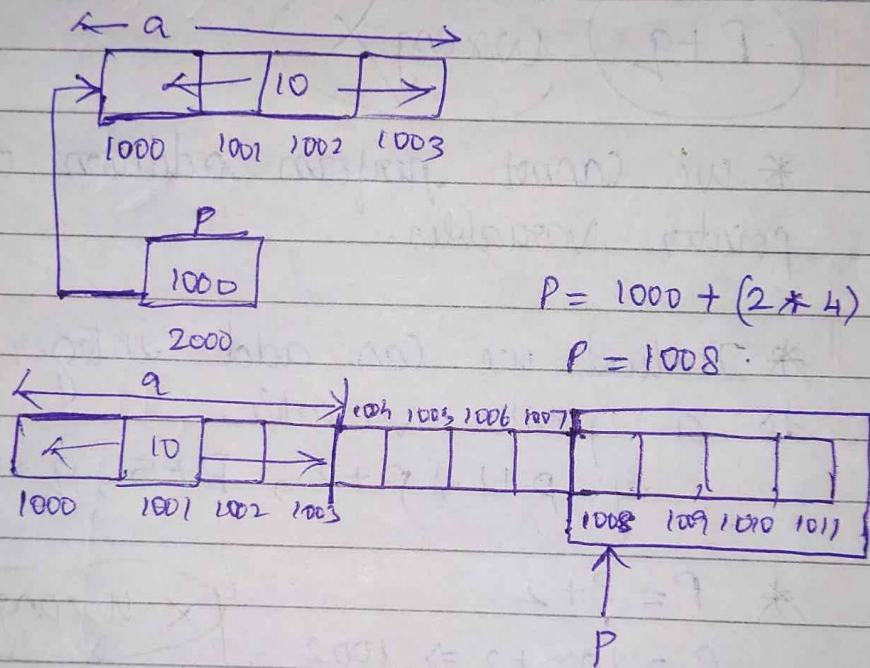 a
10
1000 1001 1002 1003
P
1000
2000
P = 1000 + (2 * 4)
P = 1008
a
1004 1005 1006 1007
10
1000 1001 1002 1003 1008 1009 1010 1011
P